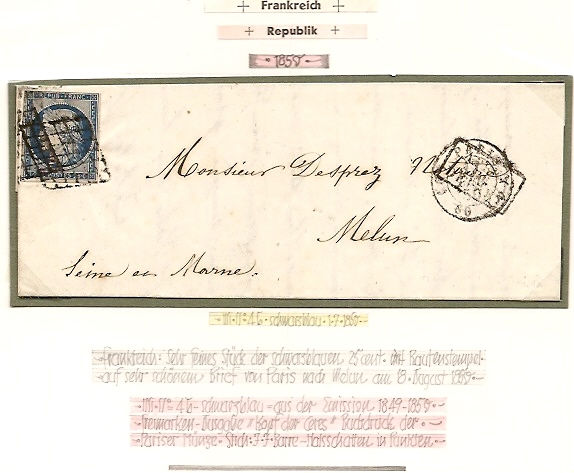 Frankreich
Republik
1850
REPUB FRANC
Monsieur Desprez Notaire
Melun
Seine et Marne.
PARIS
60
Mi·No 4b· schwarzblau· 1·7·1850
Frankreich: Sehr feines Stück der schwarzblauen 25 cent. mit Rautenstempel
auf sehr schönem Brief von Paris nach Melun am 18. August 1850
Mi·No 4b-schwarzblau-aus der Emission 1849-1850
Freimarken-Ausgabe "Kopf der Ceres" Buchdruck der
Pariser Münze-Stich: J.J. Barre-Halsschatten in Punkten